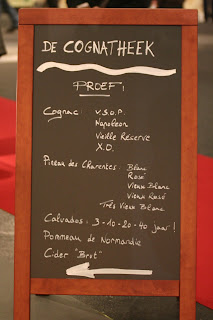 DE COGNATHEEK
PROEF!
Cognac: V.S.O.P.
Napoléon
Vieille Réserve
X.O.
Pineau des Charentes: Blanc
Rosé
Vieux Blanc
Vieux Rosé
Très Vieux Blanc
Calvados: 3-10-20-40 jaar!
Pommeau de Normandie
Cider "Brut"